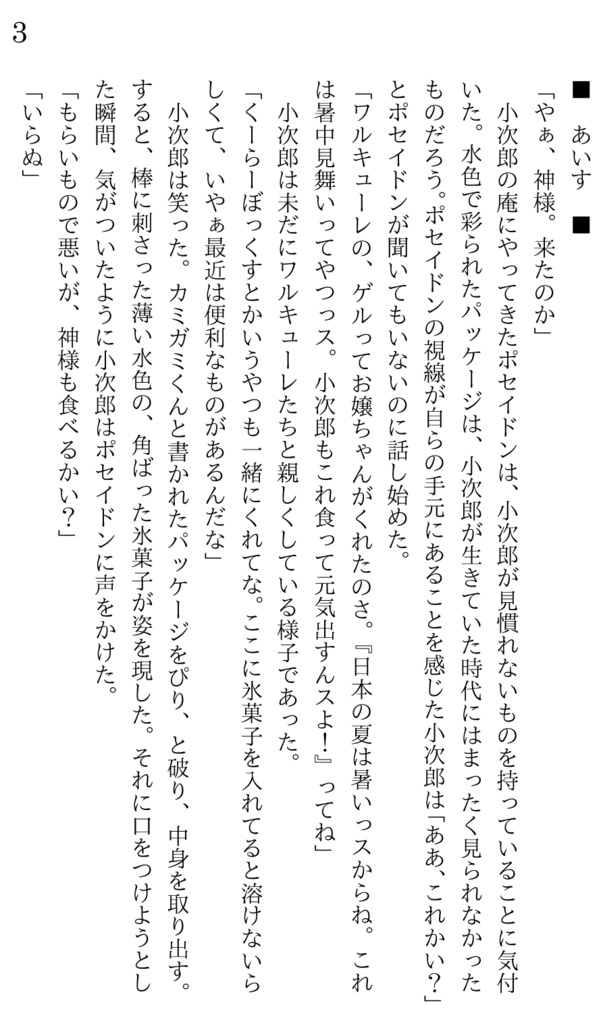 ■ あいす ■
「やぁ、神様。来たのか」
　小次郎の庵にやってきたポセイドンは、小次郎が見慣れないものを持っていることに気付
いた。水色で彩られたパッケージは、小次郎が生きていた時代にはまったく見られなかった
ものだろう。ポセイドンの視線が自らの手元にあることを感じた小次郎は「ああ、これかい？」
とポセイドンが聞いてもいないのに話し始めた。
「ワルキューレの、ゲルってお嬢ちゃんがくれたのさ。『日本の夏は暑いっスからね。これ
は暑中見舞いってやつっス。小次郎もこれ食って元気出すんスよ！』ってね」
　小次郎は未だにワルキューレたちと親しくしている様子であった。
「くーらーぼっくすとかいうやつも一緒にくれてな。ここに氷菓子を入れてると溶けないら
しくて、いやぁ最近は便利なものがあるんだな」
　小次郎は笑った。カミガミくんと書かれたパッケージをぴり、と破り、中身を取り出す。
すると、棒に刺さった薄い水色の、角ばった氷菓子が姿を現した。それに口をつけようとし
た瞬間、気がついたように小次郎はポセイドンに声をかけた。
「もらいもので悪いが、神様も食べるかい？」
「いらぬ」
3